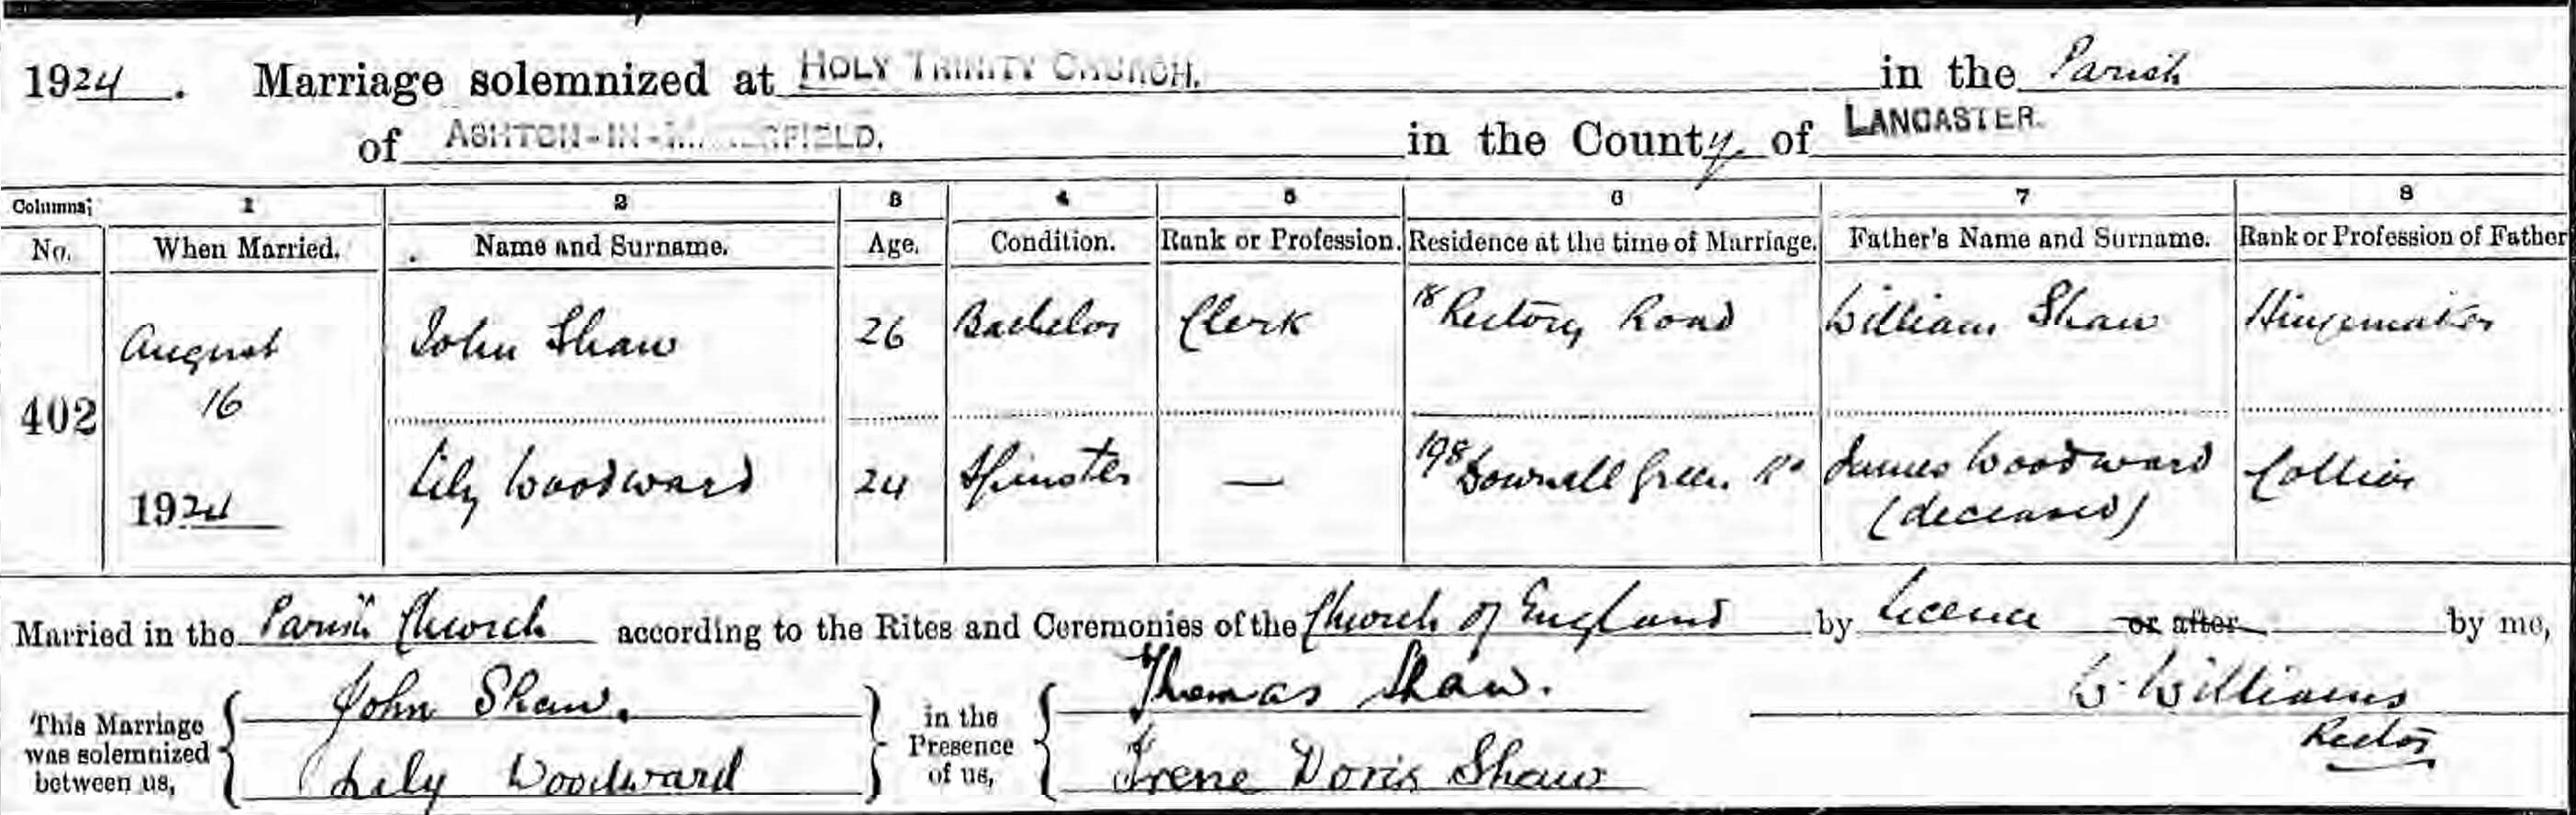 1924. Marriage solemnized at HOLY TRINITY CHURCH. in the Parish
of ASHTON-IN-MAKERFIELD. in the County of LANCASTER.
Columns; 1 2 3 4 5 6 7 8
No. When Married. Name and Surname. Age. Condition. Rank or Profession. Residence at the time of Marriage. Father's Name and Surname. Rank or Profession of Father
402 August 16 1924
John Shaw 26 Bachelor Clerk 18 Rectory Road William Shaw Hingemaker
Lily Woodward 24 Spinster — 198 Downall Green Rd James Woodward (deceased) Collier
Married in the Parish Church according to the Rites and Ceremonies of the Church of England by Licence or after by me,
This Marriage was solemnized between us, John Shaw. Lily Woodward in the Presence of us, Thomas Shaw. Irene Doris Shaw W. Williams Rector